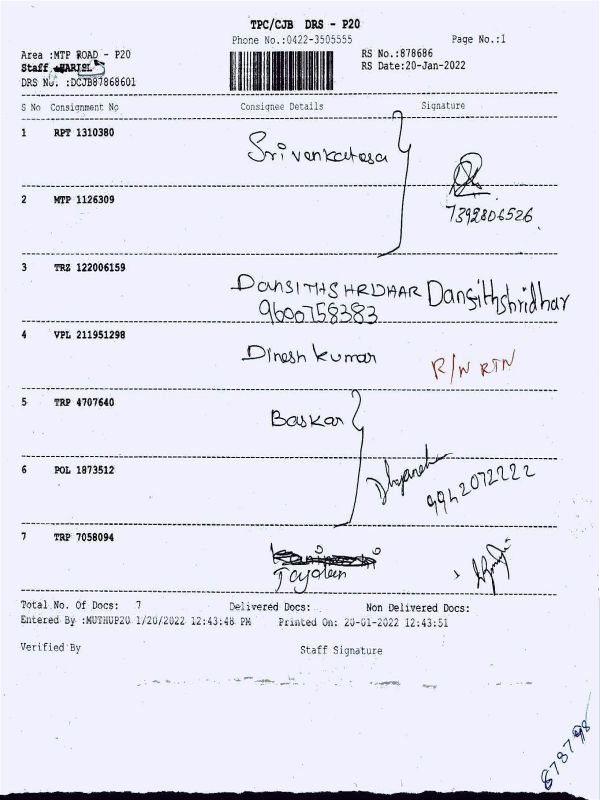 TPC/CJB DRS - P20
Phone No.:0422-3505555 Page No.:1
Area :MTP ROAD - P20 RS No.:878686
Staff RS Date:20-Jan-2022
DRS No. :DCJB87868601
S No Consignment No Consignee Details Signature
1 RPT 1310380 Srivenkatesa
2 MTP 1126309 7392806526
3 TRZ 122006159 DANSITHSHRDHAR Dansithshridhar
9600758383
4 VPL 211951298 Dinesh kumar R/N RTN
5 TRP 4707640 Baskar
6 POL 1873512 9942072222
7 TRP 7058094
Total No. Of Docs: 7 Delivered Docs: Non Delivered Docs:
Entered By :MUTHUP20 1/20/2022 12:43:48 PM Printed On: 20-01-2022 12:43:51
Verified By Staff Signature